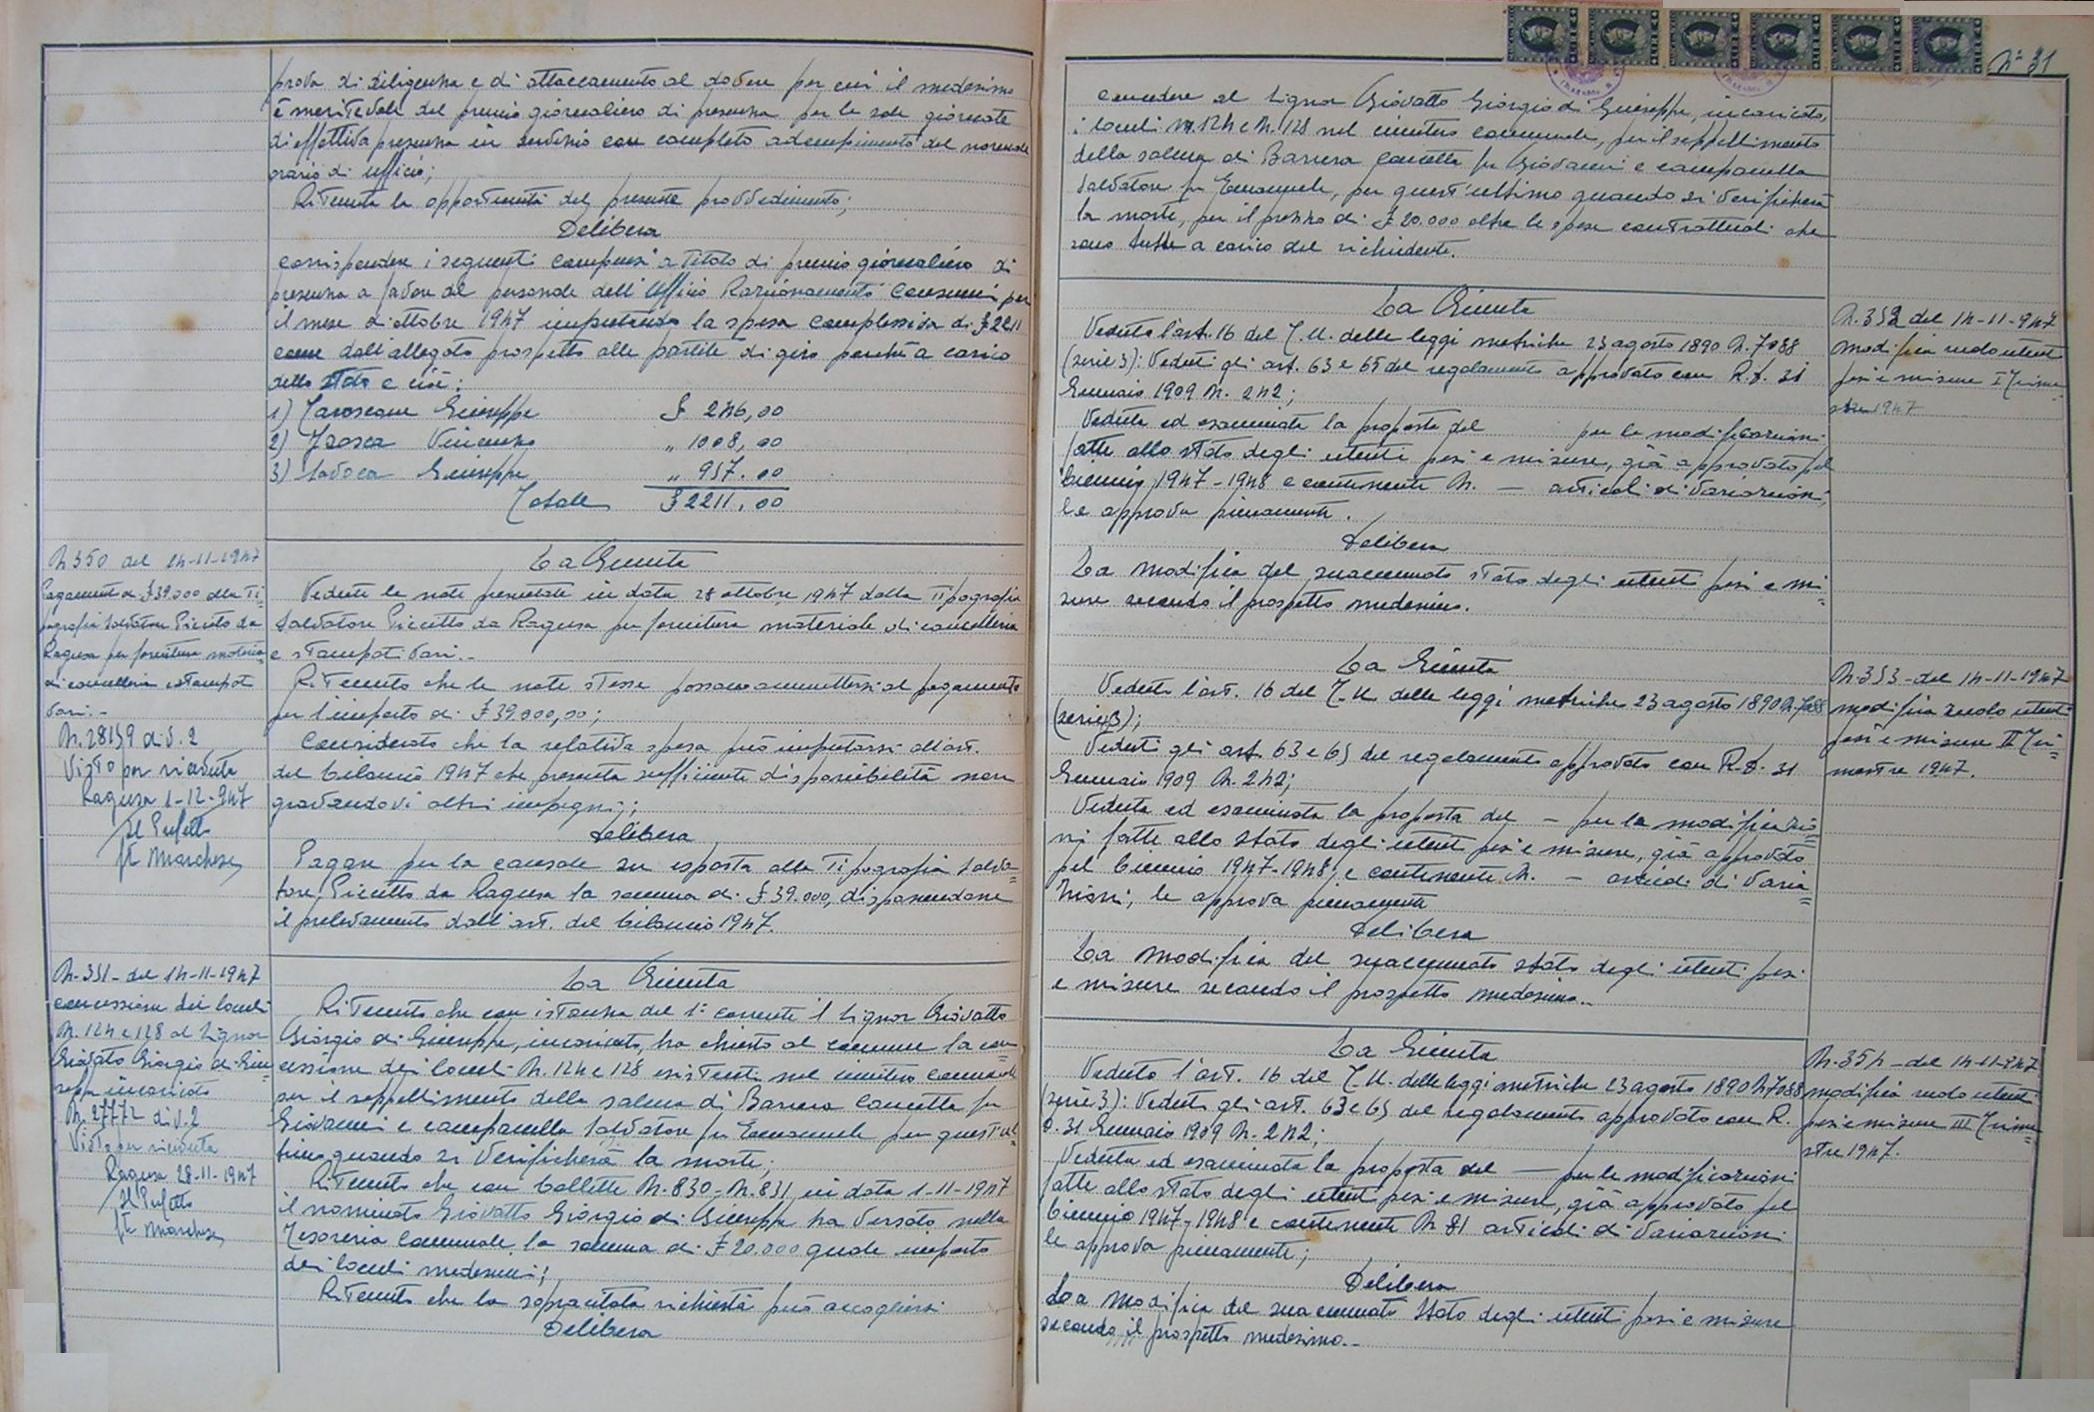 prova di diligenza e di attaccamento al dovere per cui il medesimo
è meritevole del premio giornaliero di presenza per le sole giornate
di effettiva presenza in servizio con completo adempimento del normale
orario di ufficio;
Ritenuta la opportunità del presente provvedimento;
Delibera
corrispondere i seguenti compensi a titolo di premio giornaliero di
presenza a favore del personale dell'Ufficio Razionamento Consumi per
il mese di ottobre 1947 imputando la spesa complessiva di £ 2211
come dall'allegato prospetto alle partite di giro perchè a carico
dello stato e cioè:
1) Giuseppe £ 246,00
2) Vincenzo „ 1008,00
3) Savoca Giuseppe „ 957.00
Totale £ 2211,00
N. 350 del 14-11-1947
Pagamento di £ 39.000 alla Ti=
pografia Salvatore Piccitto da
Ragusa per fornitura materia=
di cancelleria e stampati
vari.-
N. 28159 di S. 2
Visto per ricevuta
Ragusa 1-12-947
Il Prefetto
ft Marchese
La Giunta
Vedute le note presentate in data 28 ottobre 1947 dalla Tipografia
Salvatore Piccitto da Ragusa per fornitura materiale di cancelleria
e stampati vari.-
Ritenuto che le note stesse possano ammettersi al pagamento
per l'importo di £ 39.000,00;
Considerato che la relativa spesa può imputarsi all'art.
del bilancio 1947 che presenta sufficiente disponibilità non
gravandovi altri impegni;
Delibera
Pagare per la causale su esposta alla Tipografia Salva=
tore Piccitto da Ragusa la somma di £ 39.000, disponendone
il prelevamento dall'art. del bilancio 1947.
N. 351 - del 14-11-1947
concessione dei loculi
N. 124 e 128 al Signor
Giovatto Giorgio di Giu=
seppe incaricato
N. 27772 di S. 2
Visto per ricevuta
Ragusa 28-11-1947
Il Prefetto
ft Marchese
La Giunta
Ritenuto che con istanza del 1° corrente il Signor Giovatto
Giorgio di Giuseppe, incaricato, ha chiesto al comune la con=
cessione dei loculi N. 124 e 128 esistenti nel cimitero comunale
per il seppellimento della salma di Barrera Concetta fu
Giovanni e Campanella Salvatore fu Emanuele per quest'ul=
timo quando si verificherà la morte;
Ritenuto che con bollette N. 830 - N. 831 in data 1-11-1947
il nominato Giovatto Giorgio di Giuseppe ha versato nella
Tesoreria Comunale la somma di £ 20.000 quale importo
dei loculi medesimi;
Ritenuto che la sopracitata richiesta può accogliersi
Delibera
N° 31
concedere al Signor Giovatto Giorgio di Giuseppe, incaricato,
i loculi N. 124 e N. 128 nel cimitero comunale, per il seppellimento
della salma di Barrera Concetta fu Giovanni e Campanella
Salvatore fu Emanuele, per quest'ultimo quando si verificherà
la morte, per il prezzo di £ 20.000 oltre le spese contrattuali che
sono tutte a carico del richiedente.
La Giunta
Veduto l'art. 16 del T. U. delle leggi metriche 23 agosto 1890 N. 7088
(serie 3): Veduti gli art. 63 e 65 del regolamento approvato con R. D. 31
Gennaio 1909 N. 242;
Veduta ed esaminata la proposta del per le modificazioni
fatte allo stato degli utenti pesi e misure, già approvato pel
biennio 1947-1948 e contenente N. — articoli di variazioni,
le approva pienamente.
Delibera
La modifica del suaccennato stato degli utenti pesi e mi=
sure secondo il prospetto medesimo.
N. 352 del 14-11-947
modifica ruolo utenti
pesi e misure I Trime=
stre 1947
La Giunta
Veduto l'art. 16 del T. U. delle leggi metriche 23 agosto 1890 N. 7088
(serie 3);
Veduti gli art. 63 e 65 del regolamento approvato con R. D. 31
Gennaio 1909 N. 242;
Veduta ed esaminata la proposta del — per la modificazio=
ni fatte allo stato degli utenti pesi e misure, già approvato
pel biennio 1947-1948, e contenente N. — articoli di varia=
zioni, le approva pienamente
Delibera
La modifica del suaccennato stato degli utenti pesi
e misure secondo il prospetto medesimo.-
N. 353 - del 14-11-1947
modifica ruolo utenti
pesi e misure II Tri=
mestre 1947.
La Giunta
Veduto l'art. 16 del T. U. delle leggi metriche 23 agosto 1890 N. 7088
(serie 3): Veduti gli art. 63 e 65 del regolamento approvato con R.
D. 31 Gennaio 1909 N. 242;
Veduta ed esaminata la proposta del — per le modificazioni
fatte allo stato degli utenti pesi e misure, già approvato pel
biennio 1947-1948 e contenente N 81 articoli di variazioni
le approva pienamente;
Delibera
La modifica del suaccennato stato degli utenti pesi e misure
secondo il prospetto medesimo.-
N. 354 - del 14-11-947
modifica ruolo utenti
pesi e misure III Trime=
stre 1947.